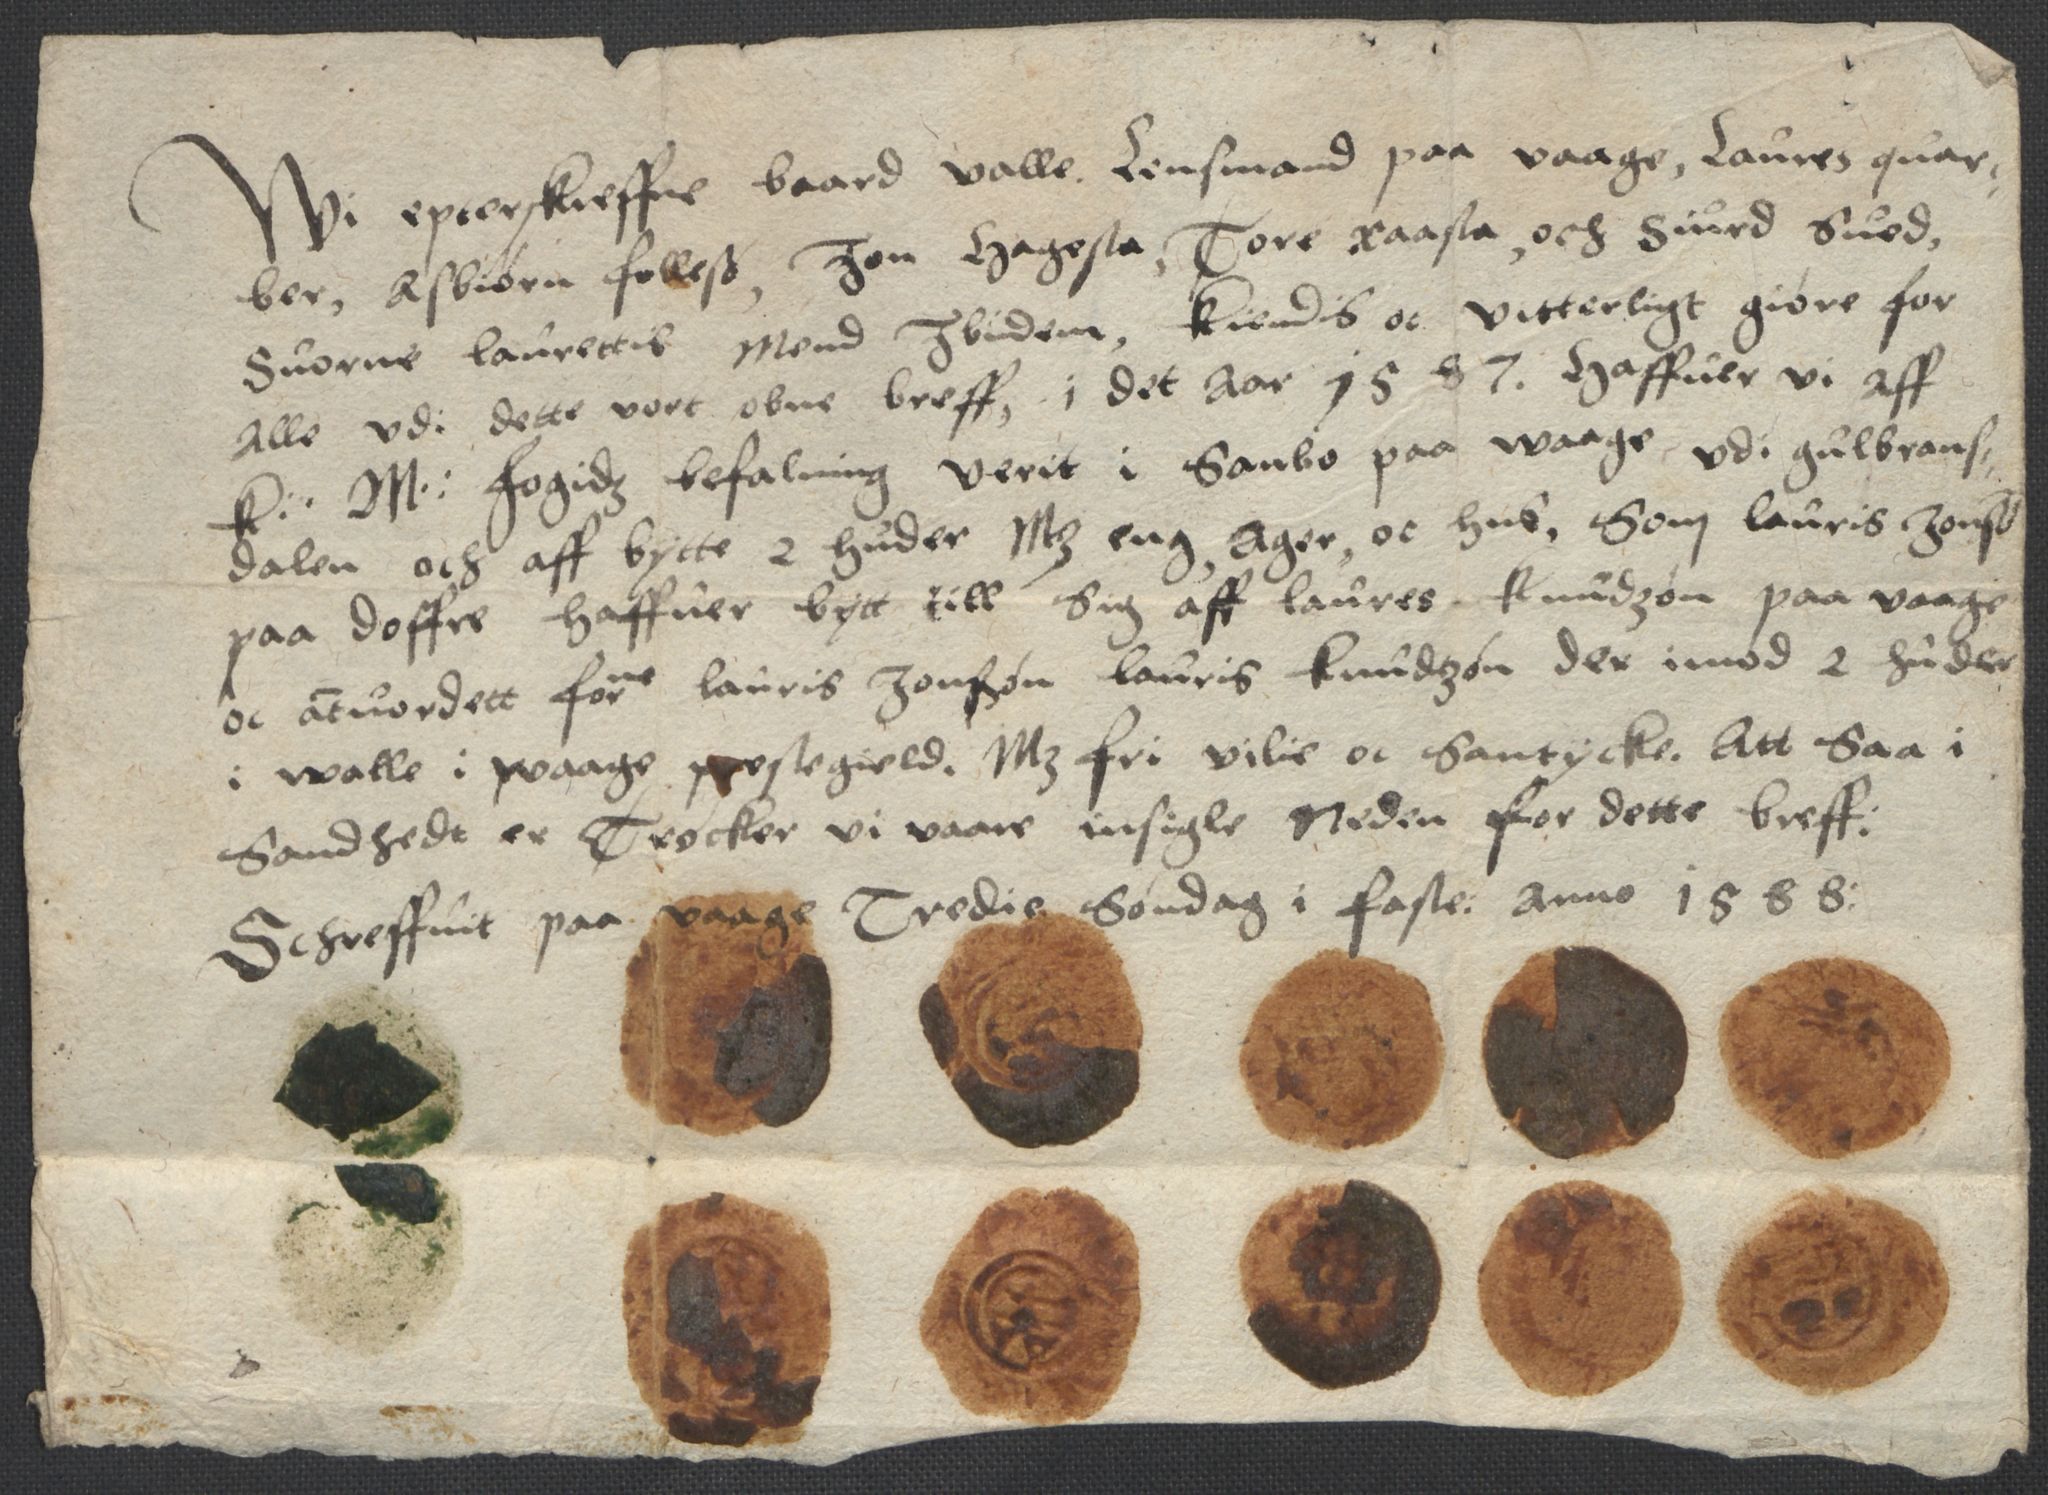 Wi epterskreffne baard valle. Lensmand paa vaage, Laures quar-
ber, Asbiørn folleß, Jon Hagesta, Tore xaasta, och Siurd Sued,
Suorne laurettis Mend Jbidem, kiendis oc vitterligt giøre for
Alle vdi dette vort obne breff, i det Aar 1587. Haffuer vi aff
K: M: fogidz befalning verit i Sanbo paa waage vdi gulbrans-
dalen och aff bytte 2 huder Mz eng, Ager, oc hus, Som lauris Jonsø
paa doffre haffuer bytt till Sig aff laures knudzøn paa vaage
oc atuordett forne lauris Jonßøn lauris knudtzøn der imod 2 huder
i walle i waage prestegield. Mz fri vilie oc Santycke. Att Saa i
Sandhedt er Trøcker vi vaare insigle Neden for dette breff:
Schreffuit paa vaage Tredie Søndag i faste: Anno 1588: